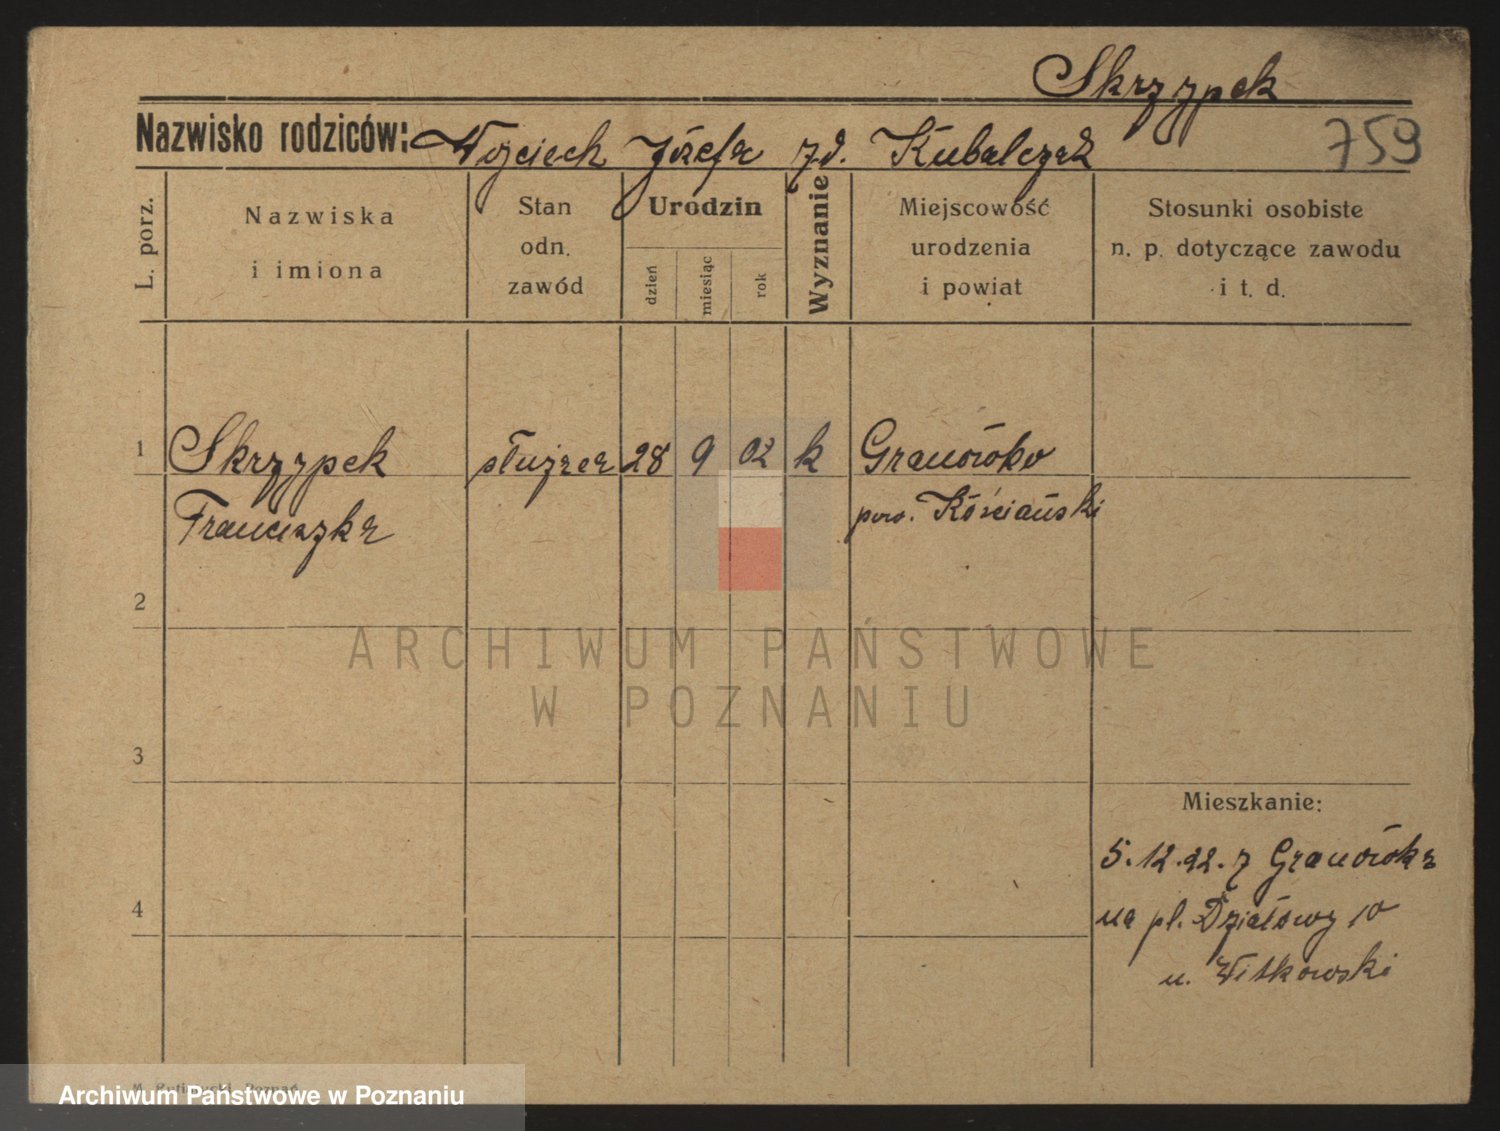 Skrzypek
759
Nazwisko rodziców: Wojciech Józefa zd. Kubalczak
L. porz.
Nazwiska
i imiona
Stan
odn.
zawód
Urodzin
dzień
miesiąc
rok
Wyznanie
Miejscowość
urodzenia
i powiat
Stosunki osobiste
n. p. dotyczące zawodu
i t. d.
1
Skrzypek służąca 28 9 02 k Granówko
Franciszka pow. Kościański
2
ARCHIWUM PAŃSTWOWE
W POZNANIU
3
Mieszkanie:
5.12.22. z Granówka
4
na pl. Działowy 10
u. Witkowski
Poznań
Archiwum Państwowe w Poznaniu